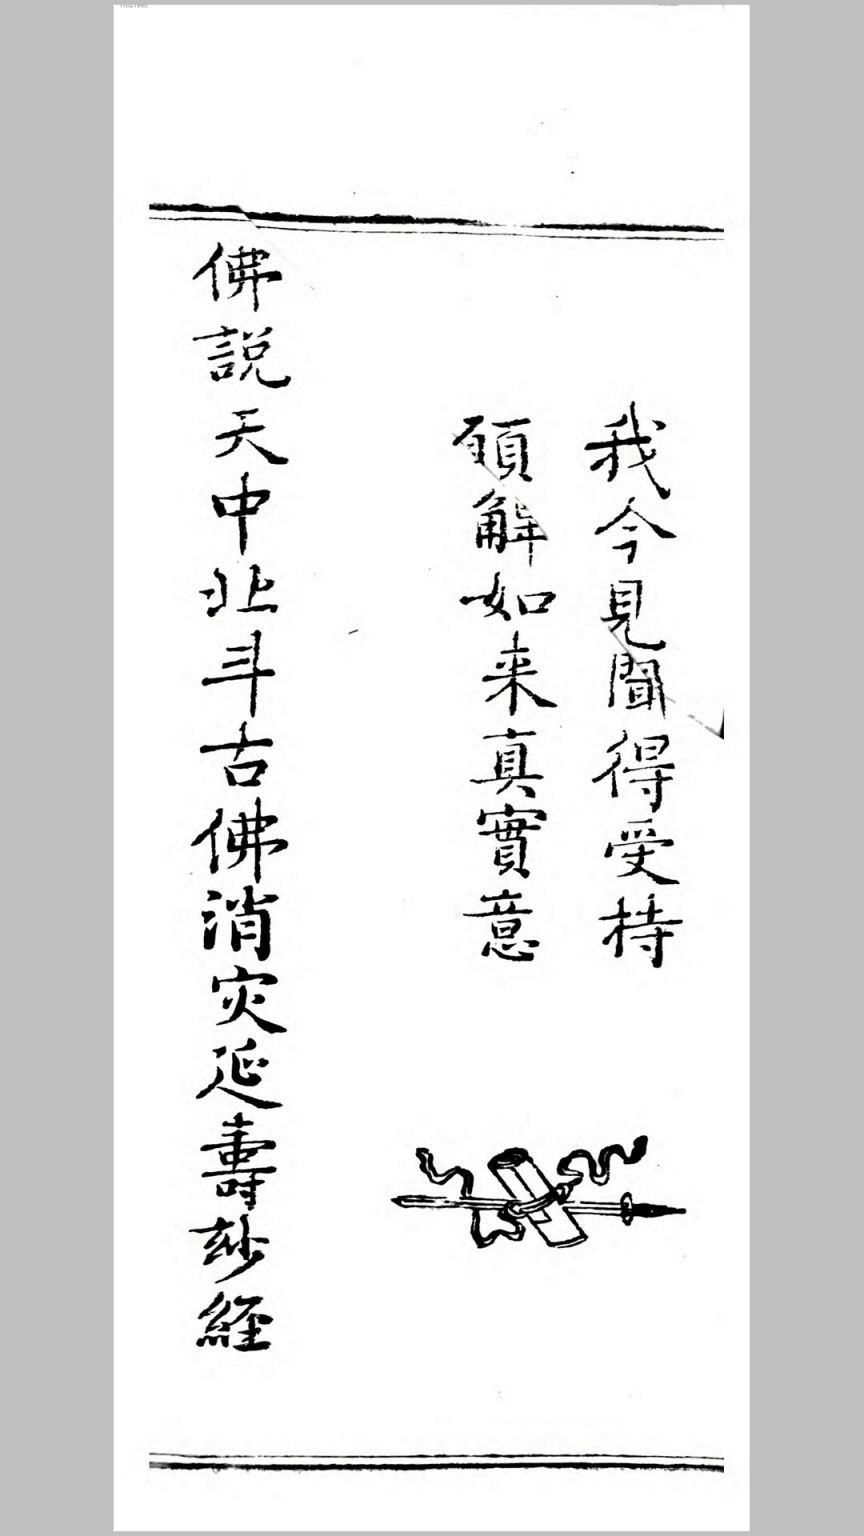 我今見聞得受持
願解如来真實意
佛説天中北斗古佛消灾延壽玅經